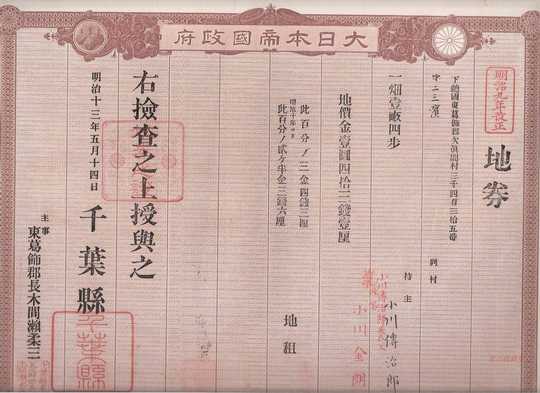 大日本帝國政府
明治九年改正
地券
下總國東葛飾郡欠眞間村三千四百三拾五番
字二三濱
一畑壹畝四歩
同村
持主 小川傳治郎
小川金
地價金壹圓四拾三錢壹厘
此百分ノ三金四錢三厘
明治十年ヨリ
此百分ノ貳ヶ半金三錢六厘
地租
右檢查之上授與之
明治十三年五月十四日
千葉縣
主事
東葛飾郡長木間瀨柔三
千葉縣